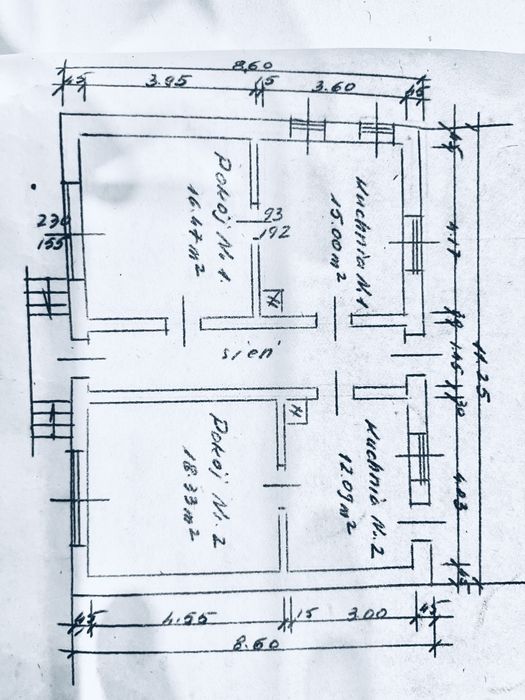 8,60
45 3.95 15 3.60 45
Pokój Nr. 1.
16.47 m²
Kuchnia N1
15.00 m²
230
155
93
192
45
4.17
1.45
30
4.03
45
11.25
sień
Pokój Nr. 2
18.33 m²
Kuchnia Nr. 2
12.09 m²
45 4.55 15 3.00 45
8.60